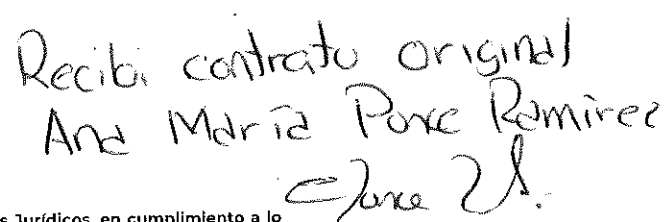 Recibi contrato original
Ana María Ponce Ramirez
s Jurídicos, en cumplimiento a lo